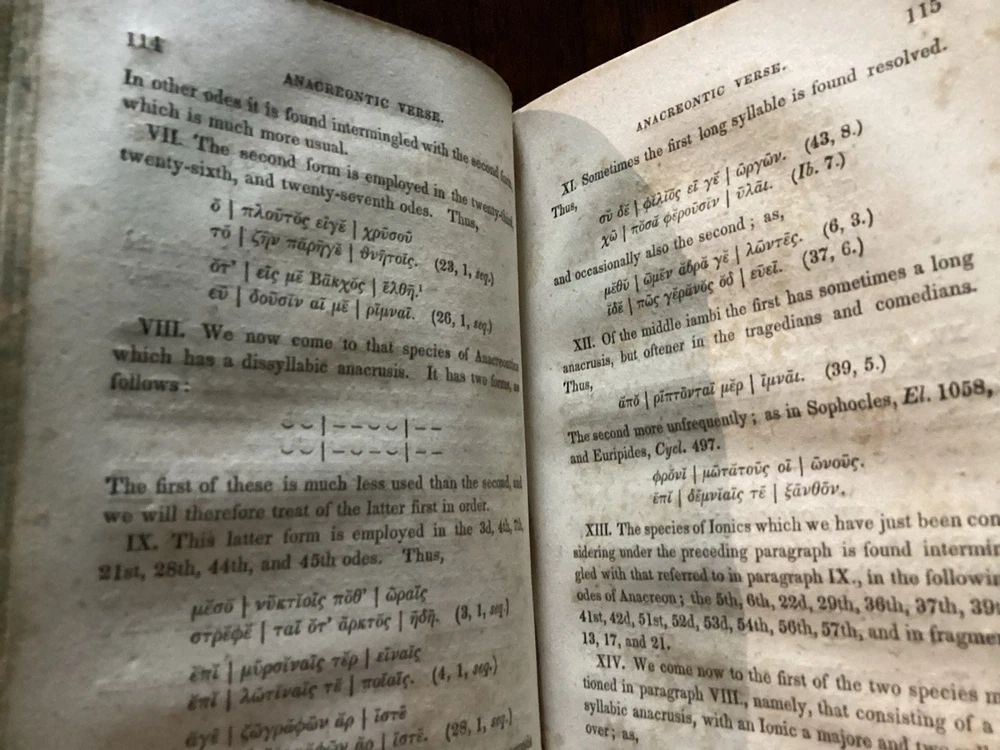 114
ANACREONTIC VERSE.
In other odes it is found intermingled with the second form,
which is much more usual.
VII. The second form is employed in the twenty-third
twenty-sixth, and twenty-seventh odes. Thus,
ὁ | πλοῦτὸς εἴγε | χρῦσοῦ
τὸ | ζῆν πᾰρῆγε̆ | θνητοῖς. (23, 1, seq.)
ὅτ’ | εἰς με̆ Βᾶκχὸς | ἔλθῃ.¹
εὕ | δοῦσῖν αἱ με̆ | ρῖμναῖ. (26, 1, seq.)
VIII. We now come to that species of Anacreontics
which has a dissyllabic anacrusis. It has two forms, as
follows:
⏑⏑|––⏑⏑|––
⏑⏑|–⏑–⏑|––
The first of these is much less used than the second, and
we will therefore treat of the latter first in order.
IX. This latter form is employed in the 3d, 4th, 7th,
21st, 28th, 44th, and 45th odes. Thus,
με̆σο̆ | νῡκτῐοῑς πο̆θ’ | ὥραῑς
στρε̆φε̆ | ταῑ ὅτ’ ἄρκτο̆ς | ἤδη. (3, 1, seq.)
ἐπῐ | μῡρσῐναῑς τε̆ρ | εῐναῑς
ἐπῐ | λωτῐναῑς τε̆ | ποῐαῑς. (4, 1, seq.)
ἄγε̆ | ζωγρᾰφῶν ἄρ | ῐστε̆
ἄρ | ῐστε̆. (28, 1, seq.)
115
ANACREONTIC VERSE.
XI. Sometimes the first long syllable is found resolved.
Thus,
σῠ δε̆ | φῐλῐος εῖ γε̆ | ὠργῶν. (43, 8.)
χῶ | πο̆σᾰ φε̆ροῡσῐν | ῡλαι. (Ib. 7.)
and occasionally also the second; as,
με̆θῠ | ὠμε̆ν ἁβρᾰ γε̆ | λῶντε̆ς. (6, 3.)
ῐδε̆ | πῶς γε̆ρᾰνο̆ς ο̆δ | εῡεῑ. (37, 6.)
XII. Of the middle iambi the first has sometimes a long
anacrusis, but oftener in the tragedians and comedians.
Thus,
ἀπο̆ | ρῑπτο̄νταῑ με̆ρ | ῐμναι. (39, 5.)
The second more unfrequently; as in Sophocles, El. 1058,
and Euripides, Cycl. 497.
φρο̆νῐ | μω̄τᾰτοῡς οῑ | ω̄νοῡς.
ε̆πῐ | δε̆μνῐαῑς τε̆ | ξᾱνθο̄ν.
XIII. The species of Ionics which we have just been con
sidering under the preceding paragraph is found intermin
gled with that referred to in paragraph IX., in the followin
odes of Anacreon; the 5th, 6th, 22d, 29th, 36th, 37th, 39
41st, 42d, 51st, 52d, 53d, 54th, 56th, 57th, and in fragmen
13, 17, and 21.
XIV. We come now to the first of the two species m
tioned in paragraph VIII., namely, that consisting of a
syllabic anacrusis, with an Ionic a majore and
over; as,